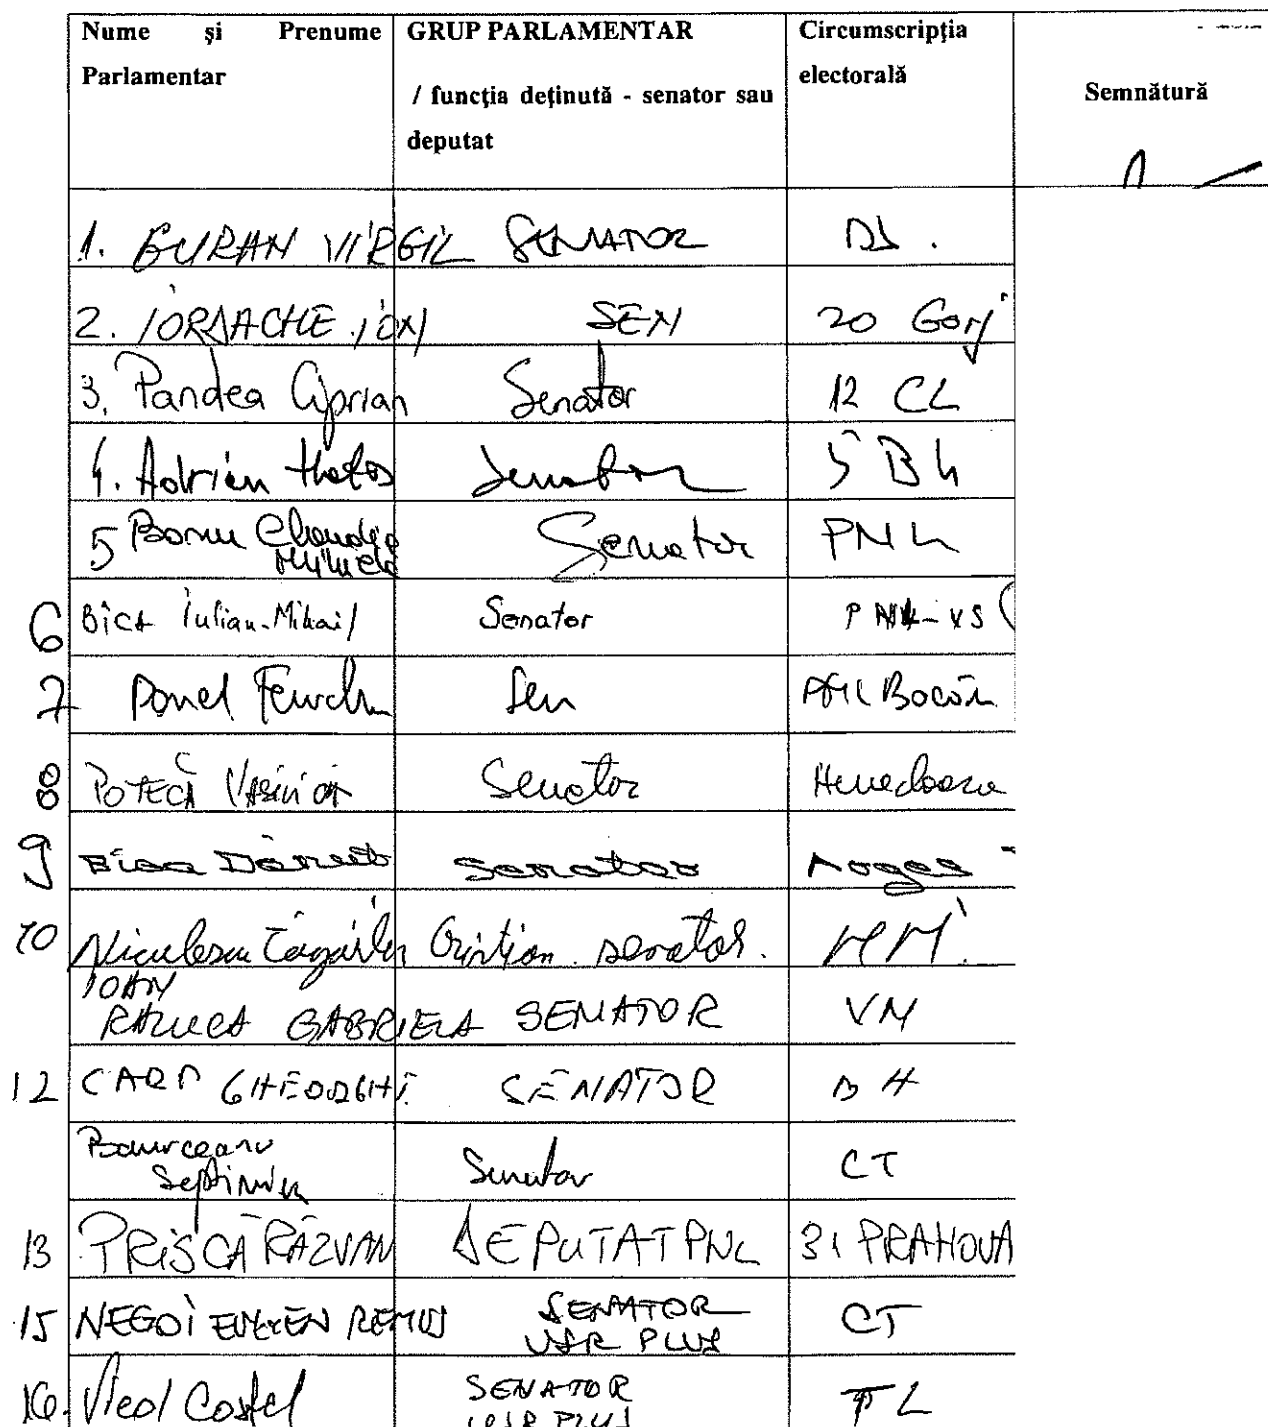 Nume și Prenume Parlamentar | GRUP PARLAMENTAR / funcția deținută - senator sau deputat | Circumscripția electorală | Semnătură
1. GURAN VIRGIL SENATOR DJ.
2. IORDACHE ION SEN 20 Gorj
3. Pandea Ciprian Senator 12 CL
4. Adrian Senator 5 BH
5 Claudia Mihaela Senator PNL
6 Bica Iulian-Mihail Senator PNL-VS
7 Senator
8 POTECĂ VASILICĂ Senator Hunedoara
9 Bica Dănuț Senator Argeș
10 Niculescu Țâgârlaș Cristian senator. MM.
IOAN RALUCA GABRIELA SENATOR VN
12 CARP GHEORGHE SENATOR BH
Septimiu Senator CT
13 PRIȘCĂ RĂZVAN DEPUTAT PNL 31 PRAHOVA
15 NEGOI EUGEN REMUS SENATOR USR PLUS CT
16. Vicol Costel SENATOR USR PLUS TL